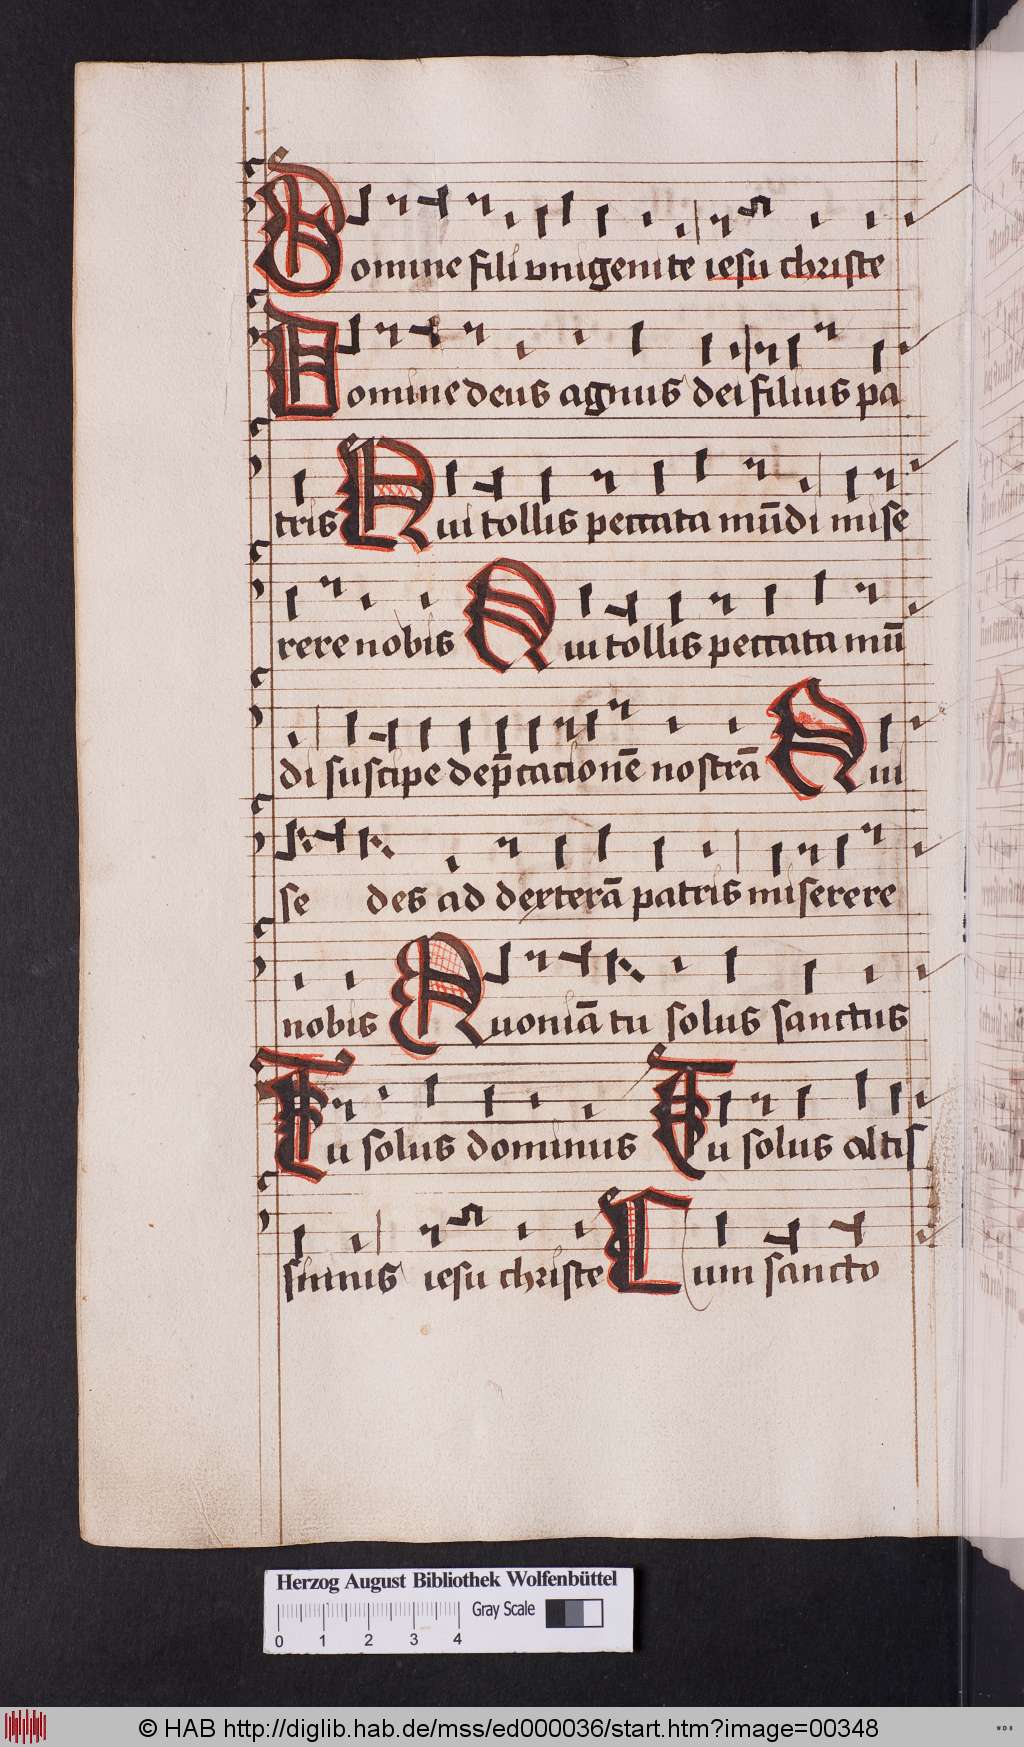 Domine fili vnigenite iesu christe
Domine deus agnus dei filius pa
tris Qui tollis peccata mūdi mise
rere nobis Qui tollis peccata mū
di suscipe dep̄cacionē nostrā Qui
se des ad dexterā patris miserere
nobis Quoniā tu solus sanctus
Tu solus dominus Tu solus altis
simus iesu christe Cum sancto
Herzog August Bibliothek Wolfenbüttel
0 1 2 3 4 Gray Scale
© HAB http://diglib.hab.de/mss/ed000036/start.htm?image=00348